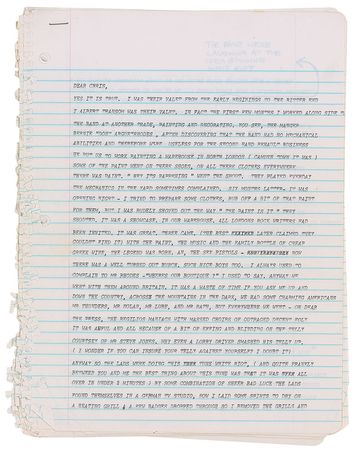 DEAR CHRIS,
YES IT IS TRUE. I WAS THEIR VALET FROM THE EARLY BEGININGS TO THE BITTER END
I ALBERT TRANSOM WAS THEIR VALET. IN FACT THE FIRST FEW MONTHS I WORKED ALONG SIDE
THE BAND AT ANOTHER TRADE, PAINTING AND DECORATING, YOU SEE, THE MANGER
BERNIE AFTER DISCOVERING THAT THE BAND HAD NO MECHANICAL
ABILITIES AND THEREFORE WERE USELESS FOR THE SECOND HAND RENAULT BUSINESS
PUT US TO WORK PAINTING A WAREHOUSE IN NORTH LONDON I CAMDEN TOWN IT WAS )
SOME OF THE PAINT WENT ON THERE SHOES, ON ALL THERE CLOTHES EVERYWHERE
THERE WAS PAINT. " HEY ITS HAPPENING " WENT THE SHOUT. THEY PLAYED EVERYDAY
THE MECHANICS IN THE YARD SOMETIMES COMPLAINED. SIX MONTHS LATTER. IT WAS
OPENING NIGHT - I TRIED TO PREPARE SOME CLOTHES, RUB OFF A BIT OF THAT PAINT
FOR THEM, BUT I WAS RUDELY SHOVED OUT THE WAY " THE PAINT IS IT " THEY
SHOUTED, IT WAS A SHOWCASE, IN OUR WAREHOUSE, ALL LONDONS ROCK WRITERS HAD
BEEN INVITED, IT WAS GREAT, THREE CAME, (THE REST LATER CLAIMED THEY
COULDNT FIND IT) WITH THE PAINT, THE MUSIC AND THE FAMILY BOTTLE OF CHEAP
GREEK WINE, THE LEGEND WAS BORN, AH, THE SEX PISTOLS - NOW
THERE WAS A WELL TURNED OUT BUNCH, SUCH NICE BOYS TOO. I ALWAYS USED TO
COMPLAIN TO MR RHODES -"WHERES OUR BOUTIQUE ?" I USED TO SAY. ANYWAY WE
WENT WITH THEM AROUND BRITAIN, IT WAS A WASTE OF TIME IF YOU ASK ME UP AND
DOWN THE COUNTRY, ACROSS THE MOUNTAINS IN THE DARK, WE HAD SOME CHARMING AMERICANS
MR THUNDERS, MR NOLAN, MR LURE, AND MR RATH, BUT EVERYWHERE WE WENT - OH DEAR
THE PRESS, THE RELIGIOUS MANIACS WITH MASSED CHOIRS OF OUTRAGED DECENT FOLK
IT WAS AWFUL AND ALL BECAUSE OF A BIT OF EFFING AND BLINDING ON THE TELLY
COURTSEY OF MR STEVE JONES, WHY EVEN A LORRY DRIVER SMASHED HIS TELLY UP,
( I WONDER IF YOU CAN INSURE YOUR TELLY AGAINST YOURSELF? I DOUBT IT)
ANYWAY SO THE LADS WERE DOING THIS TUNE WHITE RIOT, ( AND QUITE FRANKLY
BETWEEN YOU AND ME THE BEST THING ABOUT THIS TUNE WAS THAT IT WAS ALL
OVER IN UNDER 2 MINUTES ) BY SOME COMBINATION OF SHEER BAD LUCK THE LADS
FOUND THEMSELVES IN A GERMAN TV STUDIO, NOW I LAID SOME SHIRTS TO DRY ON
A HEATING GRILL & A FEW BADGES DROPPED THROUGH SO I REMOVED THE GRILLE AND